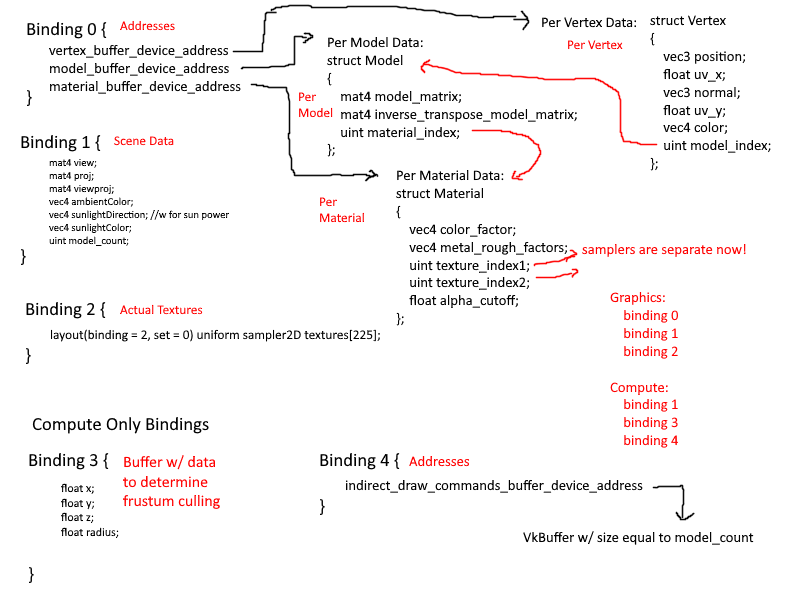 Binding 0 {
Addresses
vertex_buffer_device_address
model_buffer_device_address
material_buffer_device_address
}
Per Model Data:
struct Model
{
Per
Model
mat4 model_matrix;
mat4 inverse_transpose_model_matrix;
uint material_index;
};
Per Vertex Data:
Per Vertex
struct Vertex
{
vec3 position;
float uv_x;
vec3 normal;
float uv_y;
vec4 color;
uint model_index;
};
Binding 1 {
Scene Data
mat4 view;
mat4 proj;
mat4 viewproj;
vec4 ambientColor;
vec4 sunlightDirection; //w for sun power
vec4 sunlightColor;
uint model_count;
}
Per Material Data:
struct Material
Per
Material
{
vec4 color_factor;
vec4 metal_rough_factors;
uint texture_index1;
uint texture_index2;
float alpha_cutoff;
};
samplers are separate now!
Binding 2 {
Actual Textures
layout(binding = 2, set = 0) uniform sampler2D textures[225];
}
Graphics:
binding 0
binding 1
binding 2
Compute:
binding 1
binding 3
binding 4
Compute Only Bindings
Binding 3 {
Buffer w/ data
to determine
frustum culling
float x;
float y;
float z;
float radius;
}
Binding 4 {
Addresses
indirect_draw_commands_buffer_device_address
}
VkBuffer w/ size equal to model_count